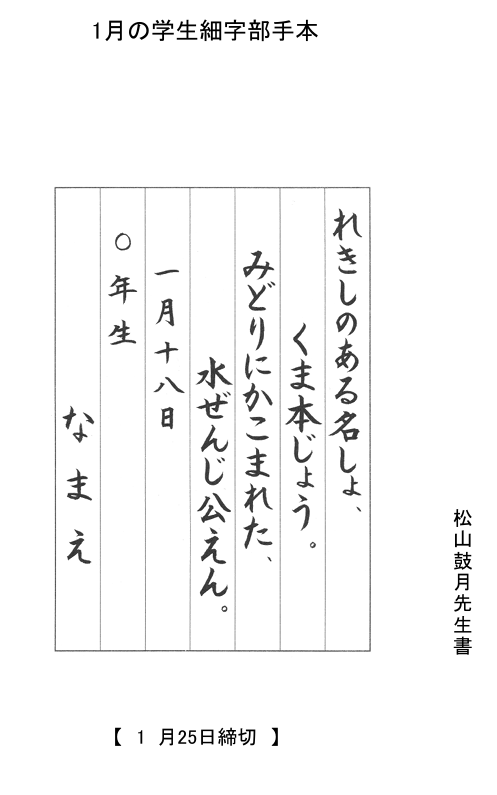 1月の学生細字部手本
れきしのある名しょ、
くま本じょう。
みどりにかこまれた、
水ぜんじ公えん。
一月十八日
〇年生
なまえ
松山鼓月先生書
【 1 月25日締切 】